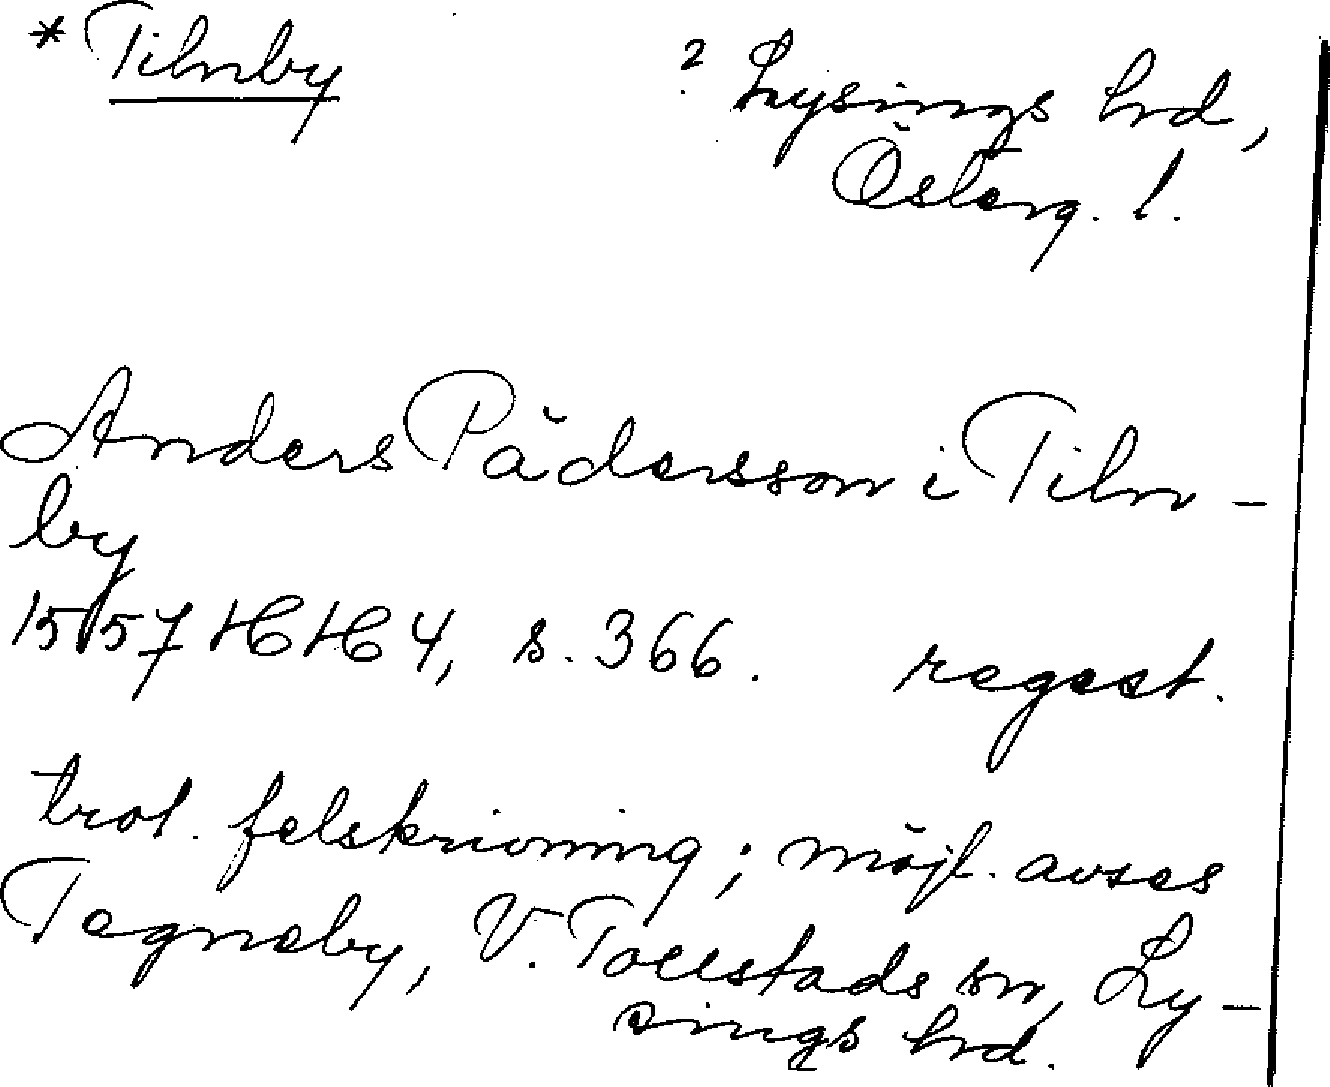 * Tilnby
? Lysings hrd,
Österg. l.
Anders Pädersson i Tiln-
by
1557 HH 4, s. 366. regest.
trol. felskrivning; möjl. avses
Tegneby, V. Tollstads sn, Ly-
sings hrd.